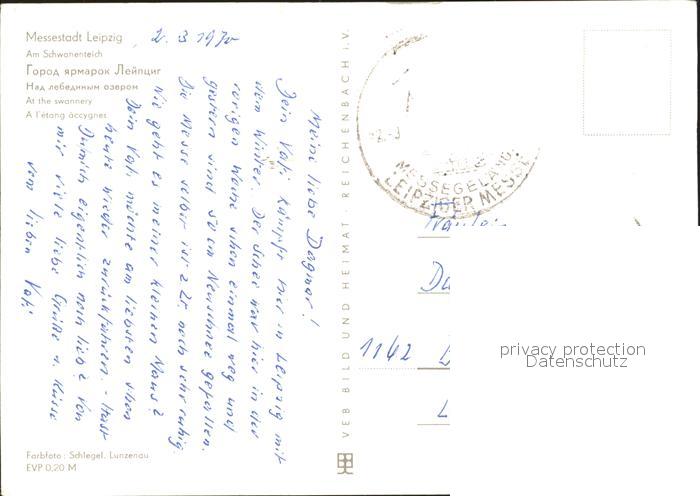 Messestadt Leipzig
Am Schwanenteich
Город ярмарок Лейпциг
Над лебединым озером
At the swannery
A l'étang àccygnes
2.3 1970
Meine liebe Dagmar!
Dein Vati kämpft hier in Leipzig mit
dem Winter. Der Schnee war hier in der
vorigen Woche schon einmal weg und
gestern sind 50 cm Neuschnee gefallen.
Die Messe selber ist z.Zt. noch sehr ruhig.
Wie geht es meiner kleinen Maus?
Dein Vati möchte am liebsten schon
heute wieder zurückfahren. - Hast
Du mich eigentlich noch lieb? Von
mir viele liebe Grüße u. Küsse
vom lieben Vati
Farbfoto: Schlegel, Lunzenau
EVP 0,20 M
VEB BILD UND HEIMAT · REICHENBACH i. V.
MESSEGELÄNDE
LEIPZIGER MESSE
Da
1162
L
privacy protection
Datenschutz